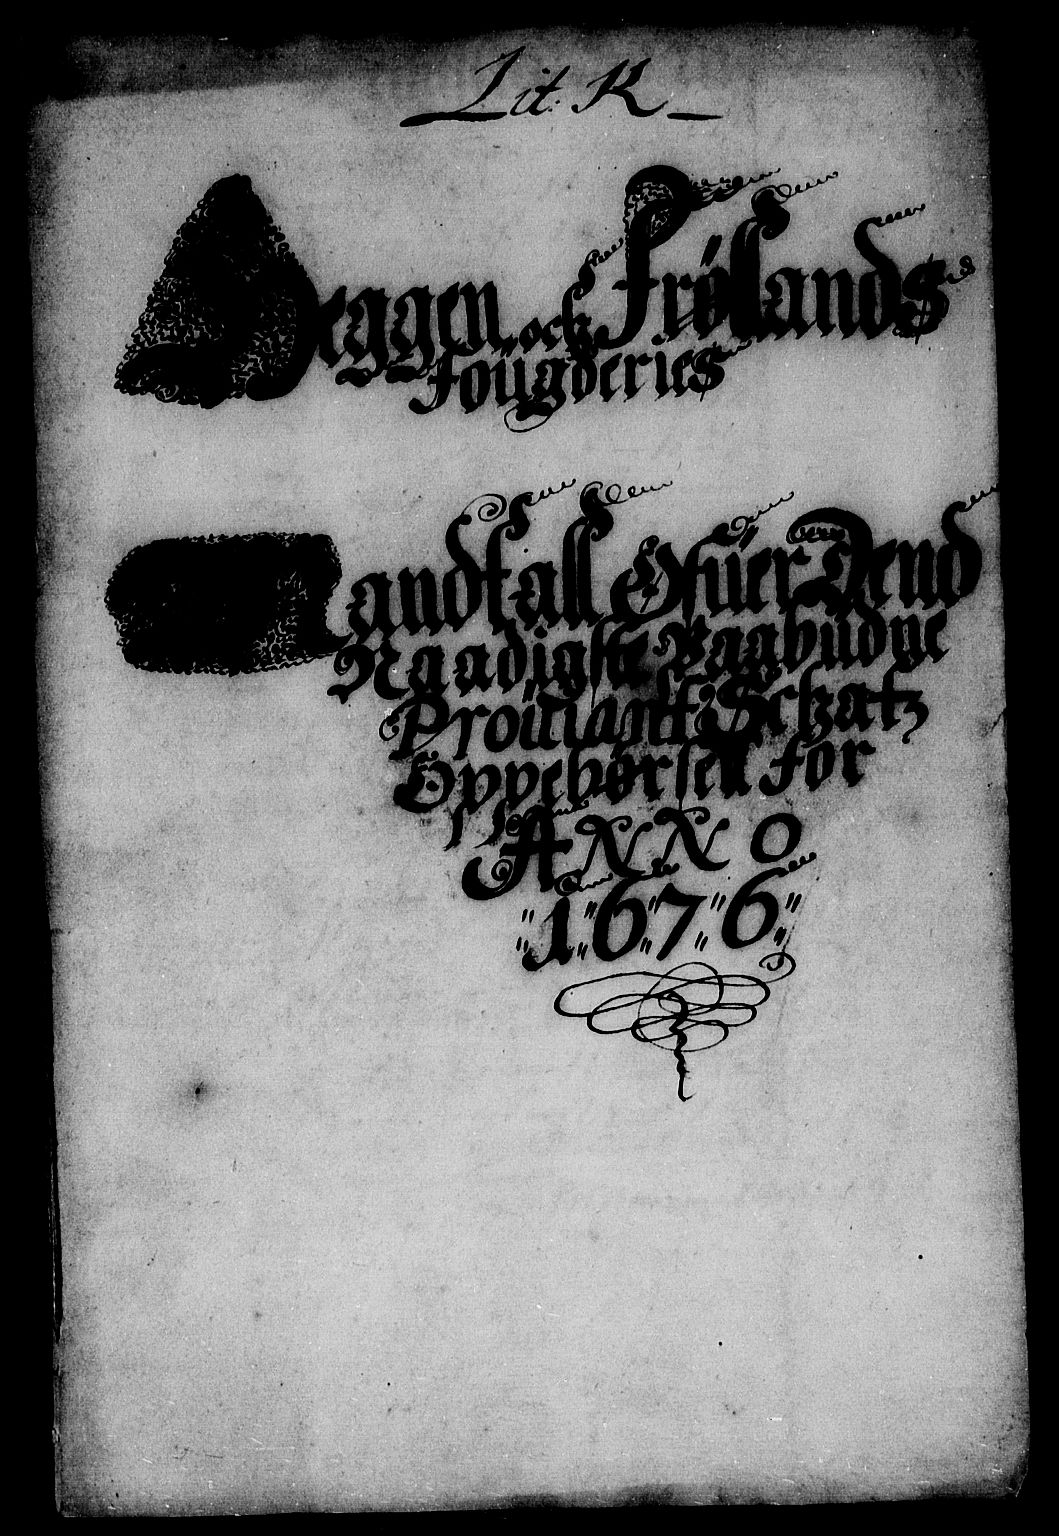 Lit: K
Heggen ock Frølands
Foügderies
Mandtall Ofüer Dend
Naadigste Paabudne
Proüiantt Schatz
Oppebørsell for
ANNO
1676